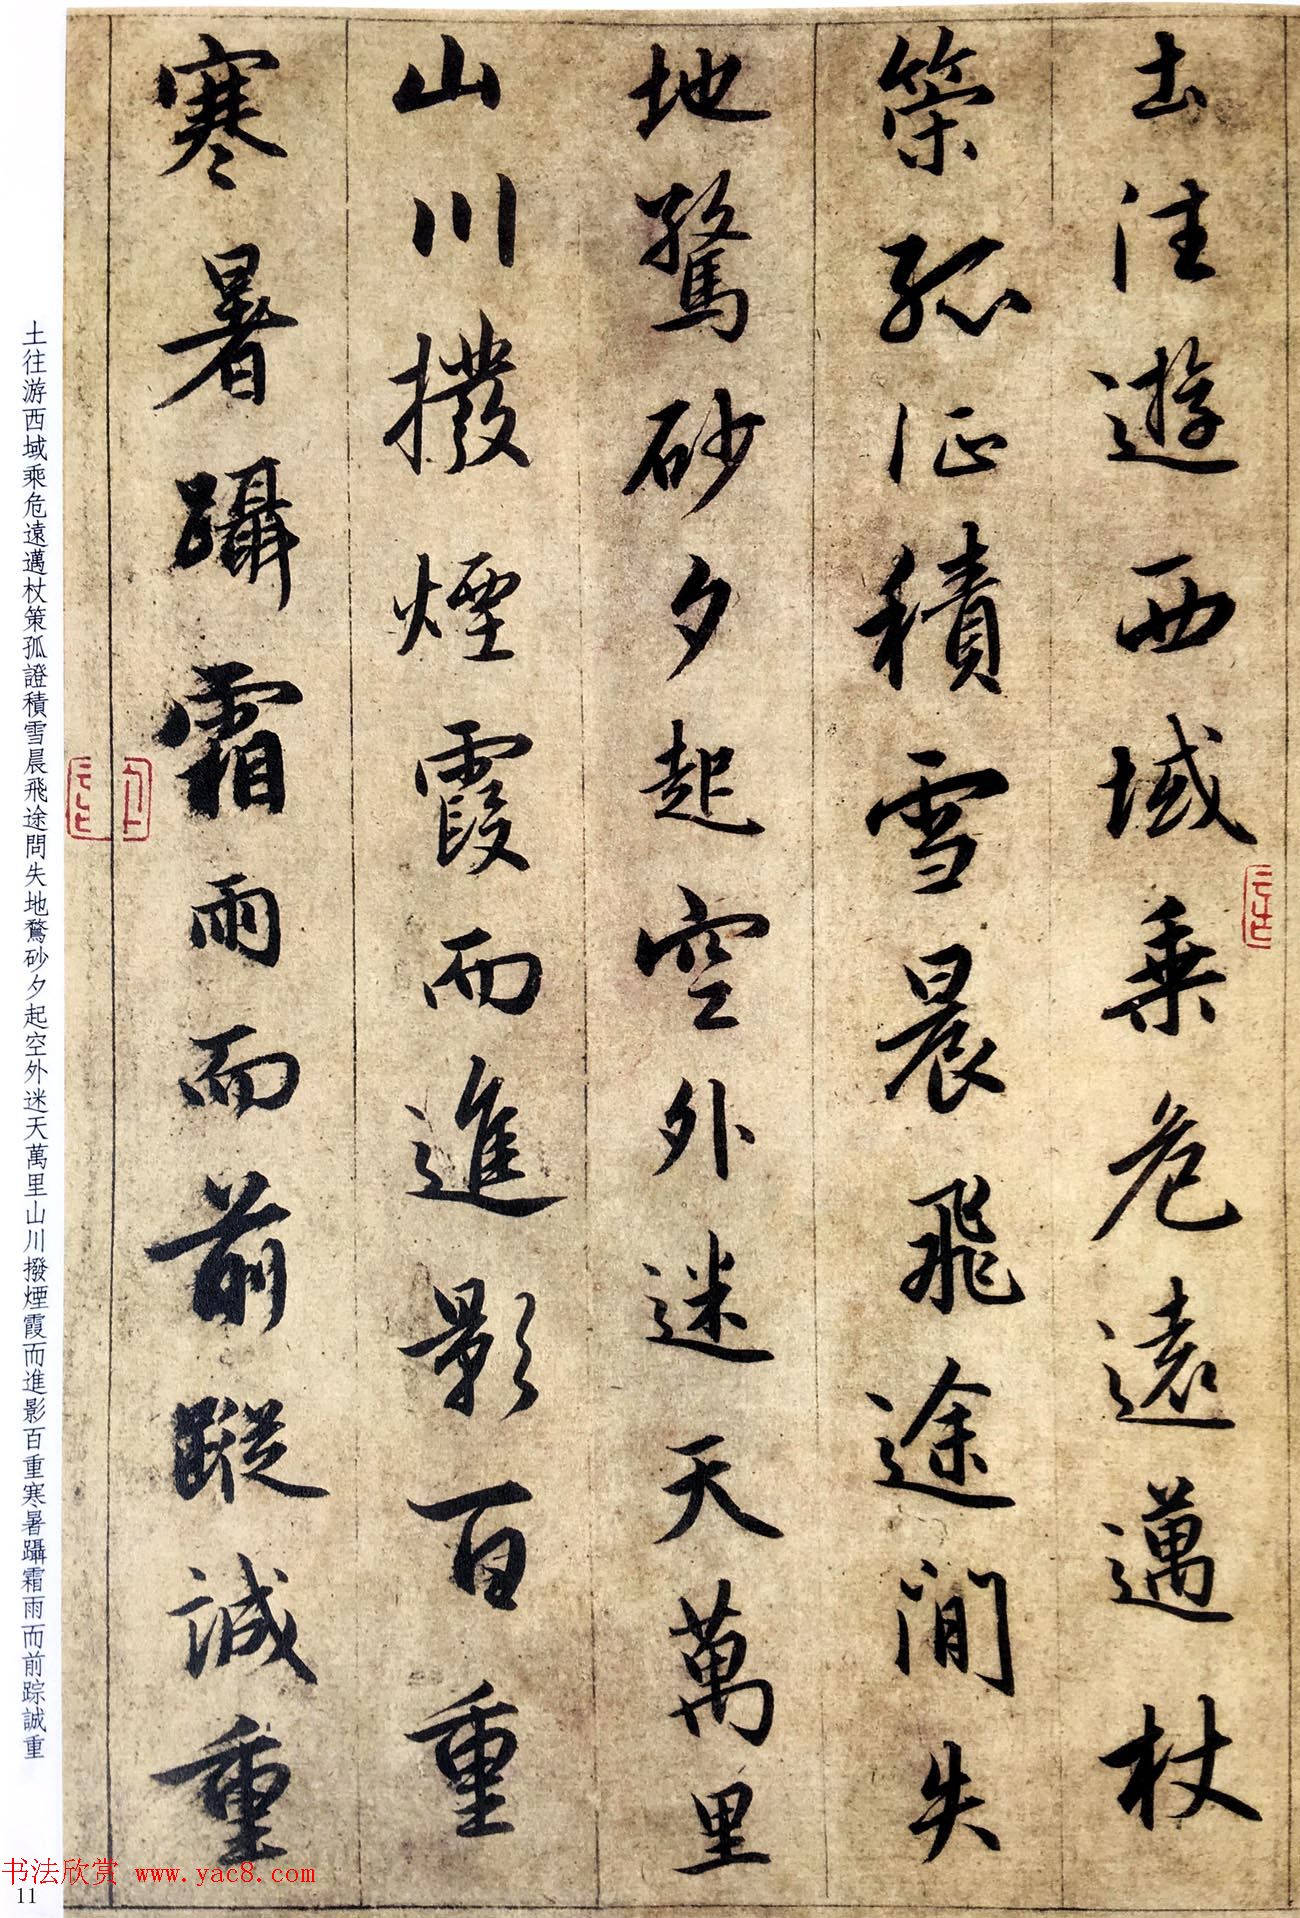 土往遊西域乘危遠邁杖
策孤征積雪晨飛途間失
地驚砂夕起空外迷天萬里
山川撥煙霞而進影百重
寒暑躡霜雨而前蹤誠重
土往游西域乘危遠邁杖策孤證積雪晨飛途問失地驚砂夕起空外迷天萬里山川撥煙霞而進影百重寒暑躡霜雨而前踪誠重
书法欣赏 www.yac8.com
11